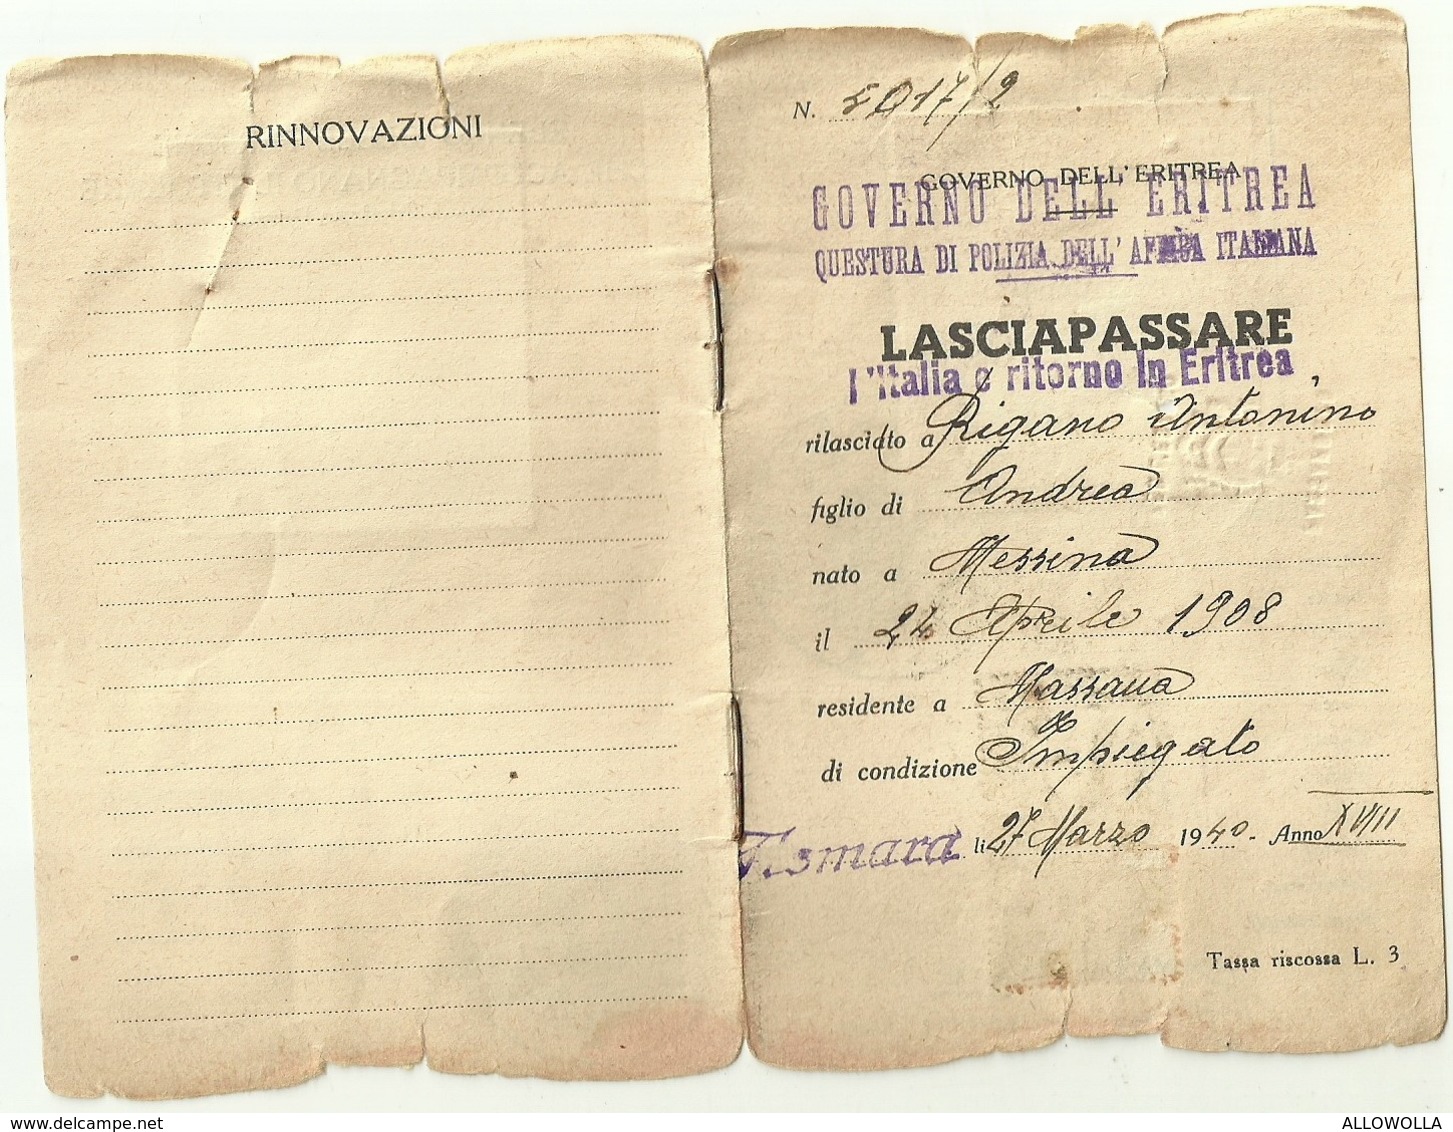 RINNOVAZIONI
N. 5017/2
GOVERNO DELL'ERITREA
GOVERNO DELL' ERITREA
QUESTURA DI POLIZIA DELL' AFRICA ITALIANA
LASCIAPASSARE
l'Italia e ritorno in Eritrea
rilasciato a Rigano Antonino
figlio di Andrea
nato a Messina
il 24 Aprile 1908
residente a Massaua
di condizione Impiegato
Asmara li 27 Marzo 1940. Anno XVIII
Tassa riscossa L. 3
www.delcampe.net
ALLOWOLLA